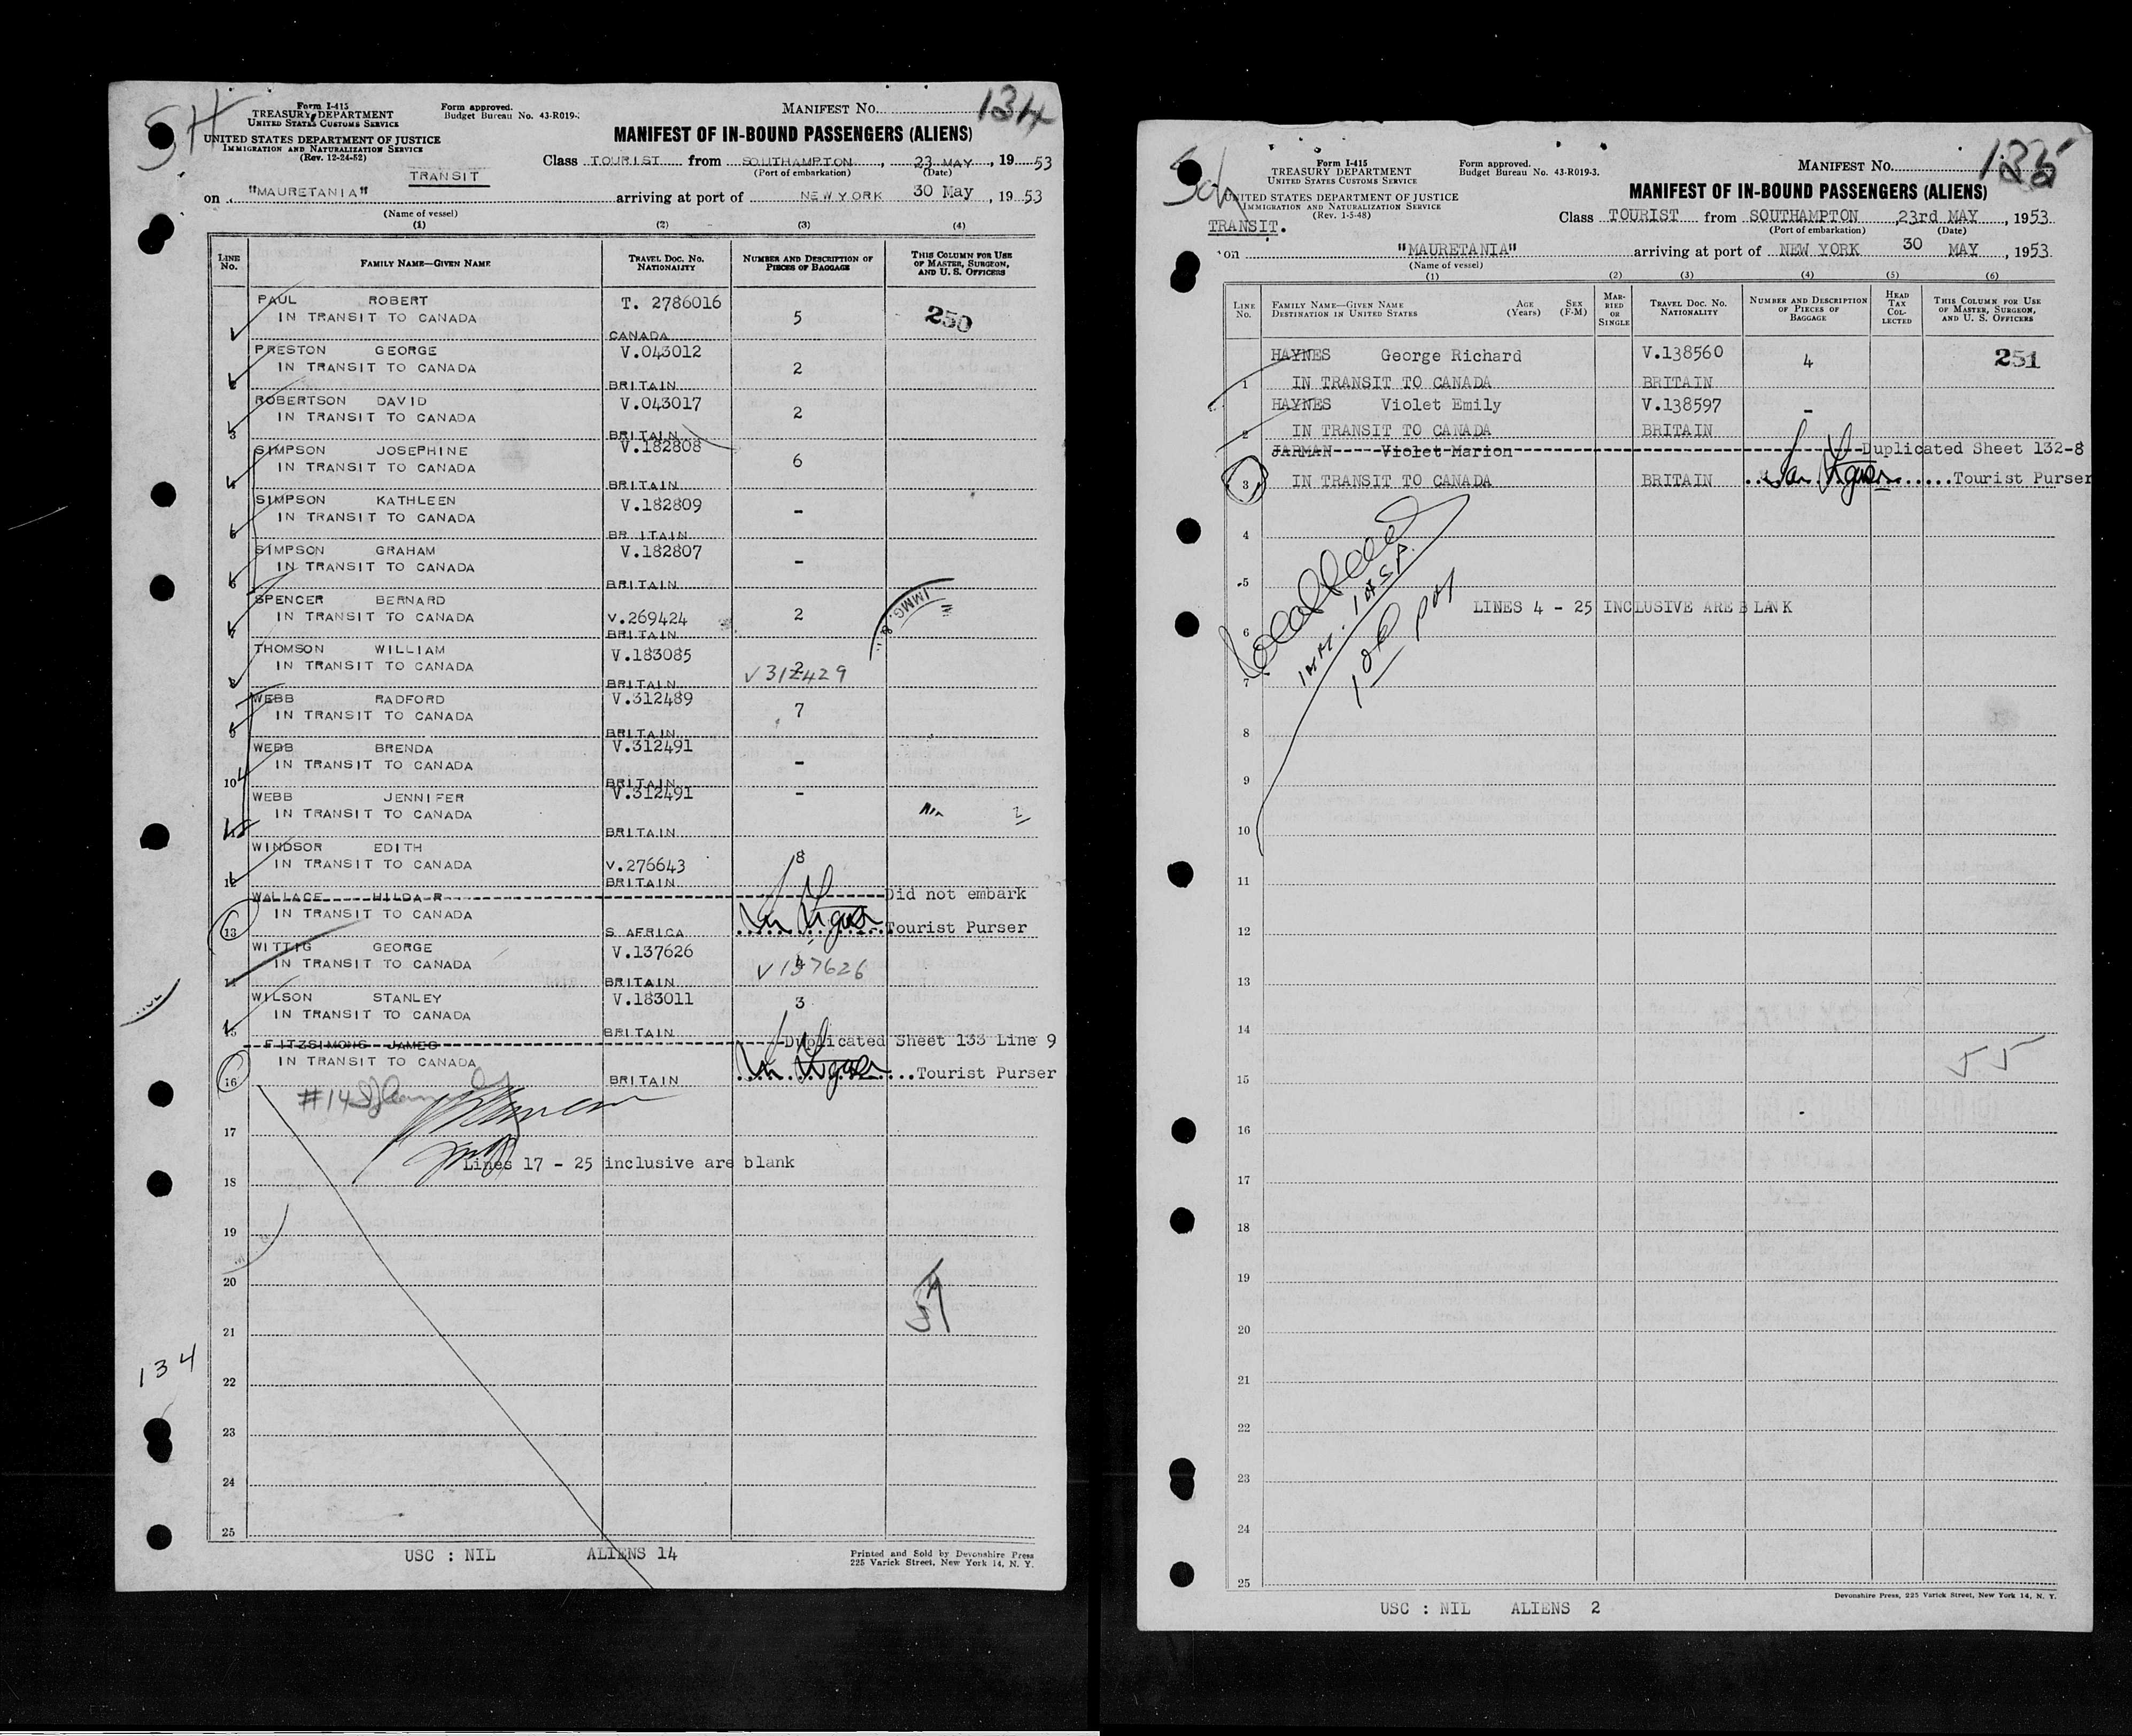 SH
Form I-415
TREASURY DEPARTMENT
UNITED STATES CUSTOMS SERVICE
UNITED STATES DEPARTMENT OF JUSTICE
IMMIGRATION AND NATURALIZATION SERVICE
(Rev. 12-24-52)
Form approved.
Budget Bureau No. 43-R019-
MANIFEST NO. 134
MANIFEST OF IN-BOUND PASSENGERS (ALIENS)
TRANSIT
Class TOURIST from SOUTHAMPTON, 23 MAY, 19 53
(Port of embarkation) (Date)
on "MAURETANIA" arriving at port of NEW YORK 30 May, 19 53
(Name of vessel)
(1) (2) (3) (4)
LINE No. FAMILY NAME—GIVEN NAME TRAVEL DOC. NO. NATIONALITY NUMBER AND DESCRIPTION OF PIECES OF BAGGAGE THIS COLUMN FOR USE OF MASTER, SURGEON, AND U. S. OFFICERS
PAUL ROBERT T. 2786016 5 250
IN TRANSIT TO CANADA CANADA
PRESTON GEORGE V.043012 2
2 IN TRANSIT TO CANADA BRITAIN
ROBERTSON DAVID V.043017 2
3 IN TRANSIT TO CANADA BRITAIN
SIMPSON JOSEPHINE V.182808 6
4 IN TRANSIT TO CANADA BRITAIN
SIMPSON KATHLEEN V.182809 -
5 IN TRANSIT TO CANADA BR ITAIN
SIMPSON GRAHAM V.182807 -
6 IN TRANSIT TO CANADA BRITAIN
SPENCER BERNARD v.269424 2
7 IN TRANSIT TO CANADA BRITAIN
IMMG.
THOMSON WILLIAM V.183085 2
8 IN TRANSIT TO CANADA BRITAIN V312429
WEBB RADFORD V.312489 7
9 IN TRANSIT TO CANADA BRITAIN
WEBB BRENDA V.312491 -
10 IN TRANSIT TO CANADA BRITAIN
WEBB JENNIFER V.312491 -
11 IN TRANSIT TO CANADA BRITAIN
WINDSOR EDITH v.276643 8
12 IN TRANSIT TO CANADA BRITAIN
WALLACE HILDA R Did not embark
13 IN TRANSIT TO CANADA S AFRICA Tourist Purser
WITTIG GEORGE V.137626
14 IN TRANSIT TO CANADA BRITAIN V137626
WILSON STANLEY V.183011 3
15 IN TRANSIT TO CANADA BRITAIN
FITZSIMONS JAMES Duplicated Sheet 133 Line 9
16 IN TRANSIT TO CANADA BRITAIN Tourist Purser
#14
17
Lines 17 - 25 inclusive are blank
18
19
20
21
134
22
23
24
25
USC : NIL ALIENS 14
Printed and Sold by Devonshire Press
225 Varick Street, New York 14, N. Y.
Form I-415
TREASURY DEPARTMENT
UNITED STATES CUSTOMS SERVICE
UNITED STATES DEPARTMENT OF JUSTICE
IMMIGRATION AND NATURALIZATION SERVICE
(Rev. 1-5-48)
Form approved.
Budget Bureau No. 43-R019-3.
MANIFEST NO. 135
MANIFEST OF IN-BOUND PASSENGERS (ALIENS)
TRANSIT.
Class TOURIST from SOUTHAMPTON, 23rd MAY, 1953
(Port of embarkation) (Date)
on "MAURETANIA" arriving at port of NEW YORK 30 MAY, 1953
(Name of vessel)
(1) (2) (3) (4) (5) (6)
LINE No. FAMILY NAME—GIVEN NAME DESTINATION IN UNITED STATES AGE (Years) SEX (F-M) MARRIED OR SINGLE TRAVEL DOC. NO. NATIONALITY NUMBER AND DESCRIPTION OF PIECES OF BAGGAGE HEAD TAX COLLECTED THIS COLUMN FOR USE OF MASTER, SURGEON, AND U. S. OFFICERS
HAYNES George Richard V.138560 4 251
1 IN TRANSIT TO CANADA BRITAIN
HAYNES Violet Emily V.138597 -
2 IN TRANSIT TO CANADA BRITAIN
JARMAN Violet Marion Duplicated Sheet 132-8
3 IN TRANSIT TO CANADA BRITAIN Tourist Purser
4
5
LINES 4 - 25 INCLUSIVE ARE BLANK
6
7
8
9
10
11
12
13
14
15 55
16
17
18
19
20
21
22
23
24
25
Devonshire Press, 225 Varick Street, New York 14, N. Y.
USC : NIL ALIENS 2